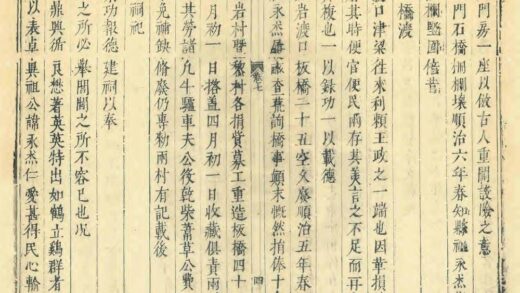 門房一座以倣古人重關設險之意
門石橋柵欄壞順治六年春知縣祖永杰
柵欄堅固倍昔
橋渡
口津梁往來利賴王政之一端也因葺損
其時便官便民商存其美言之不足而再
復也一以錄功一以載德
岩渡口板橋二十五空久廢順治五年春
永杰詢橋事顛末慨然捐俸十
岩村暨黎村各捐貲募工重造板橋四十
月初一日搭蓋四月初一日收藏俱責兩
其勞諸凢斗騾車夫公役乾柴薪草公費
免補缺脩廢仍專勒兩村有記載後
祠祀
功報德建祠以奉
之所必舉閭閻之所不容已也况
鼎興循良懋著英英特出如鶴立鷄群者
以表卓異祖公諱永杰仁愛甚得民心輸
卷七
四